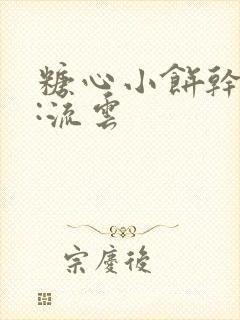 糖心小餅幹
:流雲
宗慶後